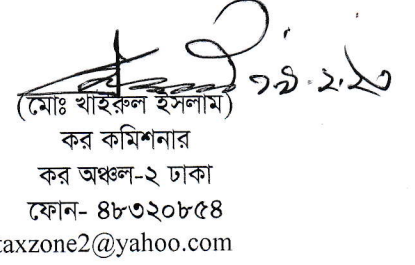 (মোঃ খাইরুল ইসলাম)
কর কমিশনার
কর অঞ্চল-২ ঢাকা
ফোন- ৪৮৩২০৮৫৪
taxzone2@yahoo.com